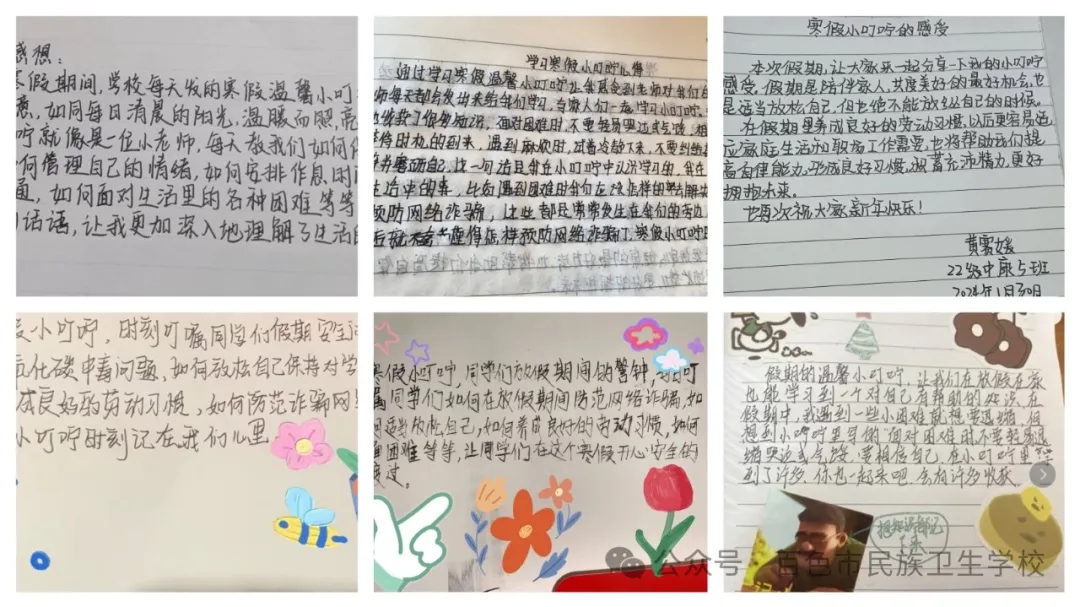 感想：
寒假期间，学校每天发的寒假温馨小叮
如同每日清晨的阳光，温暖而照亮
咛就像是一位小老师，每天教我们如何
何管理自己的情绪，如何安排作息时间
如何面对生活里的各种困难等等
话语，让我更加深入地理解了生活的
学习寒假小叮咛心得
通过学习寒假温馨小叮咛让我感受到老师对我们的
每天都会发出来给我们学习，与家人们一起学习小叮咛，
面对困难时，不要轻易哭泣或气馁，相
待时机的到来，遇到麻烦时，试着冷静下来，不要纠结
这一句话是我在小叮咛中认识学习的，我在
生活中的事，比如遇到困难时我们应该怎样的去解决
预防网络诈骗，这些都是常常发生在我们的旁边
懂得怎样预防网络诈骗了，寒假小叮咛
寒假小叮咛的感受
本次假期，让大家来一起分享一下我的小叮咛
感受，假期是陪伴家人，共度美好的最好机会，也
是适当放松自己，但也绝不能放纵自己的时候。
在假期里养成良好的劳动习惯，以后更容易适
应家庭生活和职场工作需要，也将帮助我们提
高自律能力，形成良好习惯，积蓄充沛精力，更好
拥抱未来。
也再次祝大家新年快乐！
黄雪媛
22级中康5班
2024年1月30日
小叮咛，时刻叮嘱同学们假期安全问
氧化碳中毒问题，如何放松自己保持对学
成良好的劳动习惯，如何防范诈骗网
小叮咛时刻记在我们心里。
寒假小叮咛，同学们放假期间的警钟，时刻叮
嘱同学们如何在放假期间防范网络诈骗，如
何适当放松自己，如何养成良好的劳动习惯，如何
面对困难等等，让同学们在这个寒假开心安全的
度过。
假期的温馨小叮咛，让我们在放假在家
也能学习到一个对自己有帮助的知识在
假期中，我遇到一些小困难就想要退缩，但
想到小叮咛里写的面对困难时，不要轻易退
缩哭泣或气馁，要相信自己，在小叮咛里学
到了许多，你也一起来吧，会有许多收获。
公众号·百色市民族卫生学校